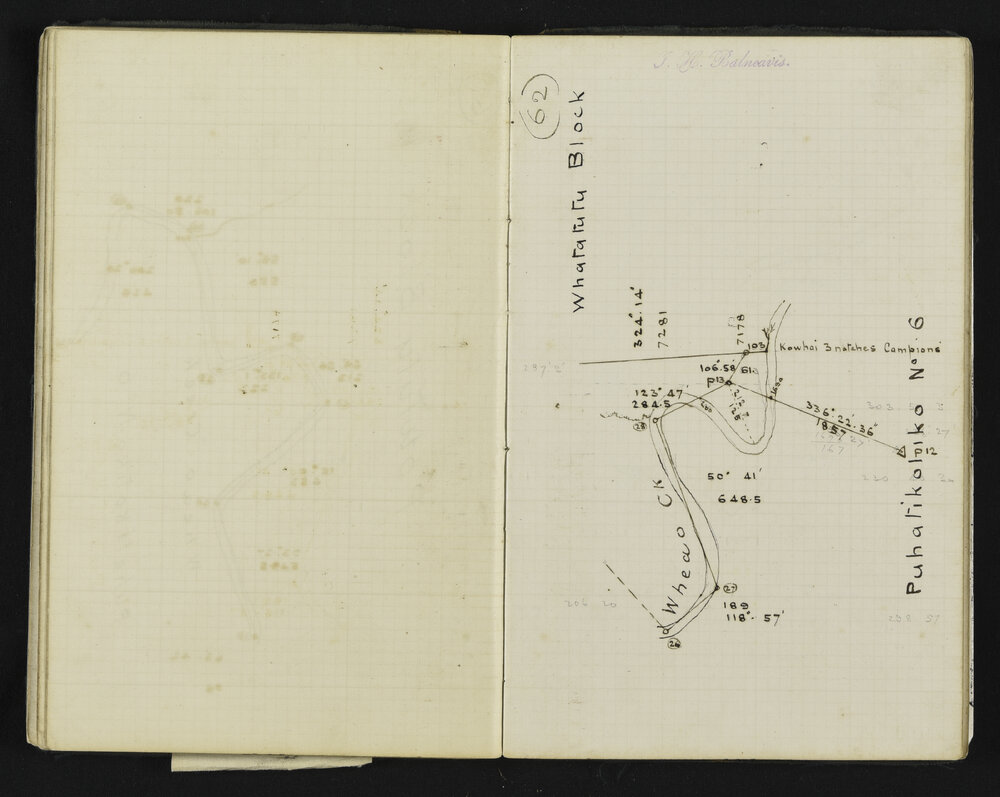 J. H. Balneavis.
62
Whatatutu Block
324° 14'
7281
7178
103
Kowhai 3 notches Campions
106° 58'
61
P13
123° 47'
284.5
28
336° 22' 36"
1857
767
P12
Puhatikotiko No 6
50° 41'
648.5
Wheao Ck
27
189
118° 57'
26
206 20
238 57